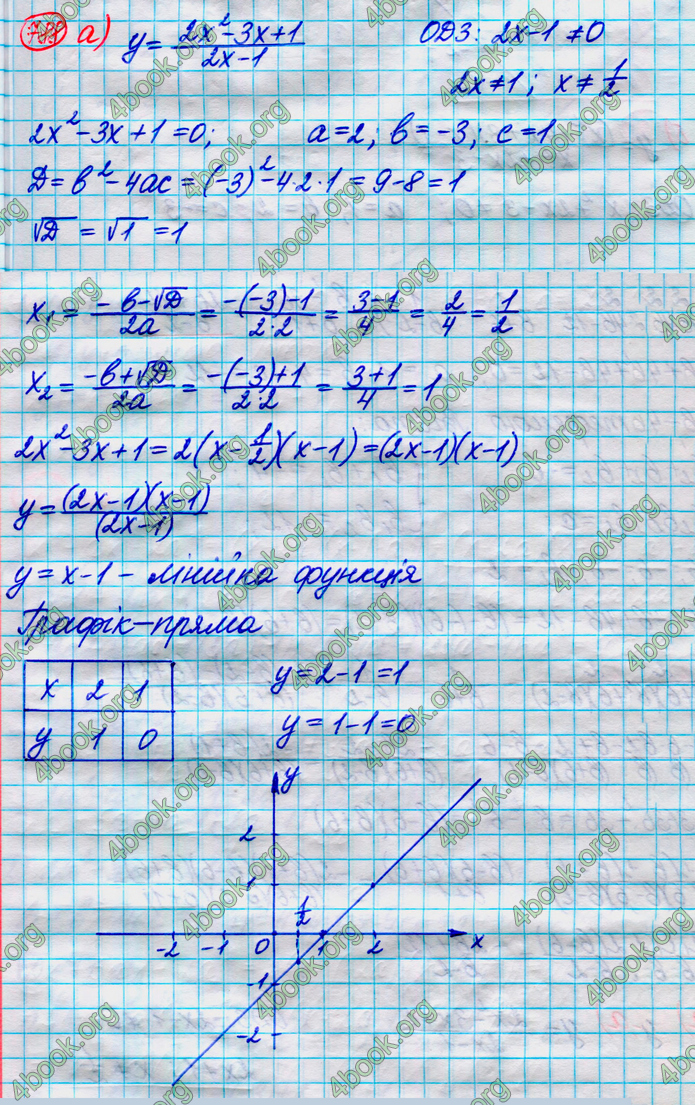 788 а) y = (2x² - 3x + 1)/(2x - 1) ОДЗ: 2x - 1 ≠ 0
2x ≠ 1; x ≠ 1/2
2x² - 3x + 1 = 0; a = 2; b = -3; c = 1
Д = b² - 4ac = (-3)² - 4·2·1 = 9 - 8 = 1
√Д = √1 = 1
x₁ = (-b - √Д)/2a = (-(-3) - 1)/(2·2) = (3 - 1)/4 = 2/4 = 1/2
x₂ = (-b + √Д)/2a = (-(-3) + 1)/(2·2) = (3 + 1)/4 = 1
2x² - 3x + 1 = 2(x - 1/2)(x - 1) = (2x - 1)(x - 1)
y = (2x - 1)(x - 1)/(2x - 1)
y = x - 1 - лінійна функція
Графік - пряма
x 2 1 y = 2 - 1 = 1
y 1 0 y = 1 - 1 = 0
y
2
1
1/2
-2 -1 0 1 2 x
-1
-2
4book.org